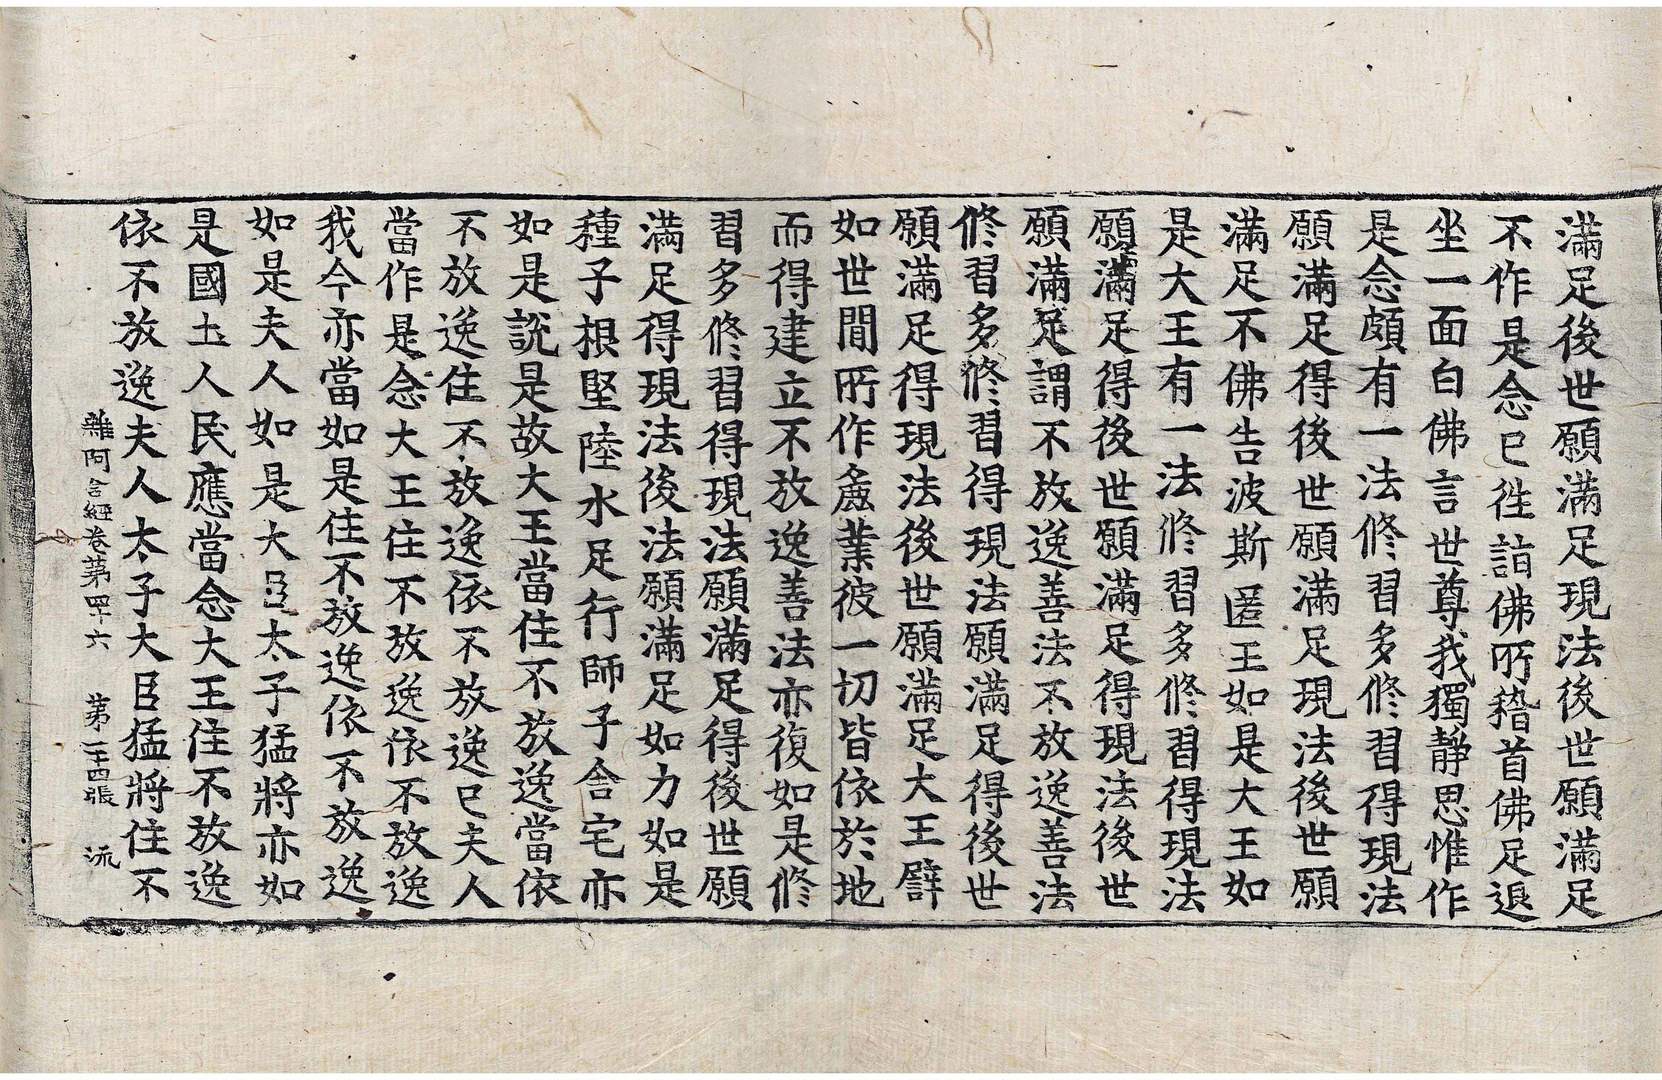 滿足後世願滿足現法後世願滿足
不作是念已徃詣佛所稽首佛足退
坐一面白佛言世尊我獨靜思惟作
是念頗有一法修習多修習得現法
願滿足得後世願滿足現法後世願
滿足不佛告波斯匿王如是大王如
是大王有一法修習多修習得現法
願滿足得後世願滿足得現法後世
願滿足謂不放逸善法不放逸善法
修習多修習得現法願滿足得後世
願滿足得現法後世願滿足大王譬
如世間所作麁業彼一切皆依於地
而得建立不放逸善法亦復如是修
習多修習得現法願滿足得後世願
滿足得現法後法願滿足如力如是
種子根堅陸水足行師子舍宅亦
如是說是故大王當住不放逸當依
不放逸住不放逸依不放逸已夫人
當作是念大王住不放逸依不放逸
我今亦當如是住不放逸依不放逸
如是夫人如是大臣太子猛將亦如
是國土人民應當念大王住不放逸
依不放逸夫人太子大臣猛將住不
雜阿含經卷第四十六 第二十四張 流